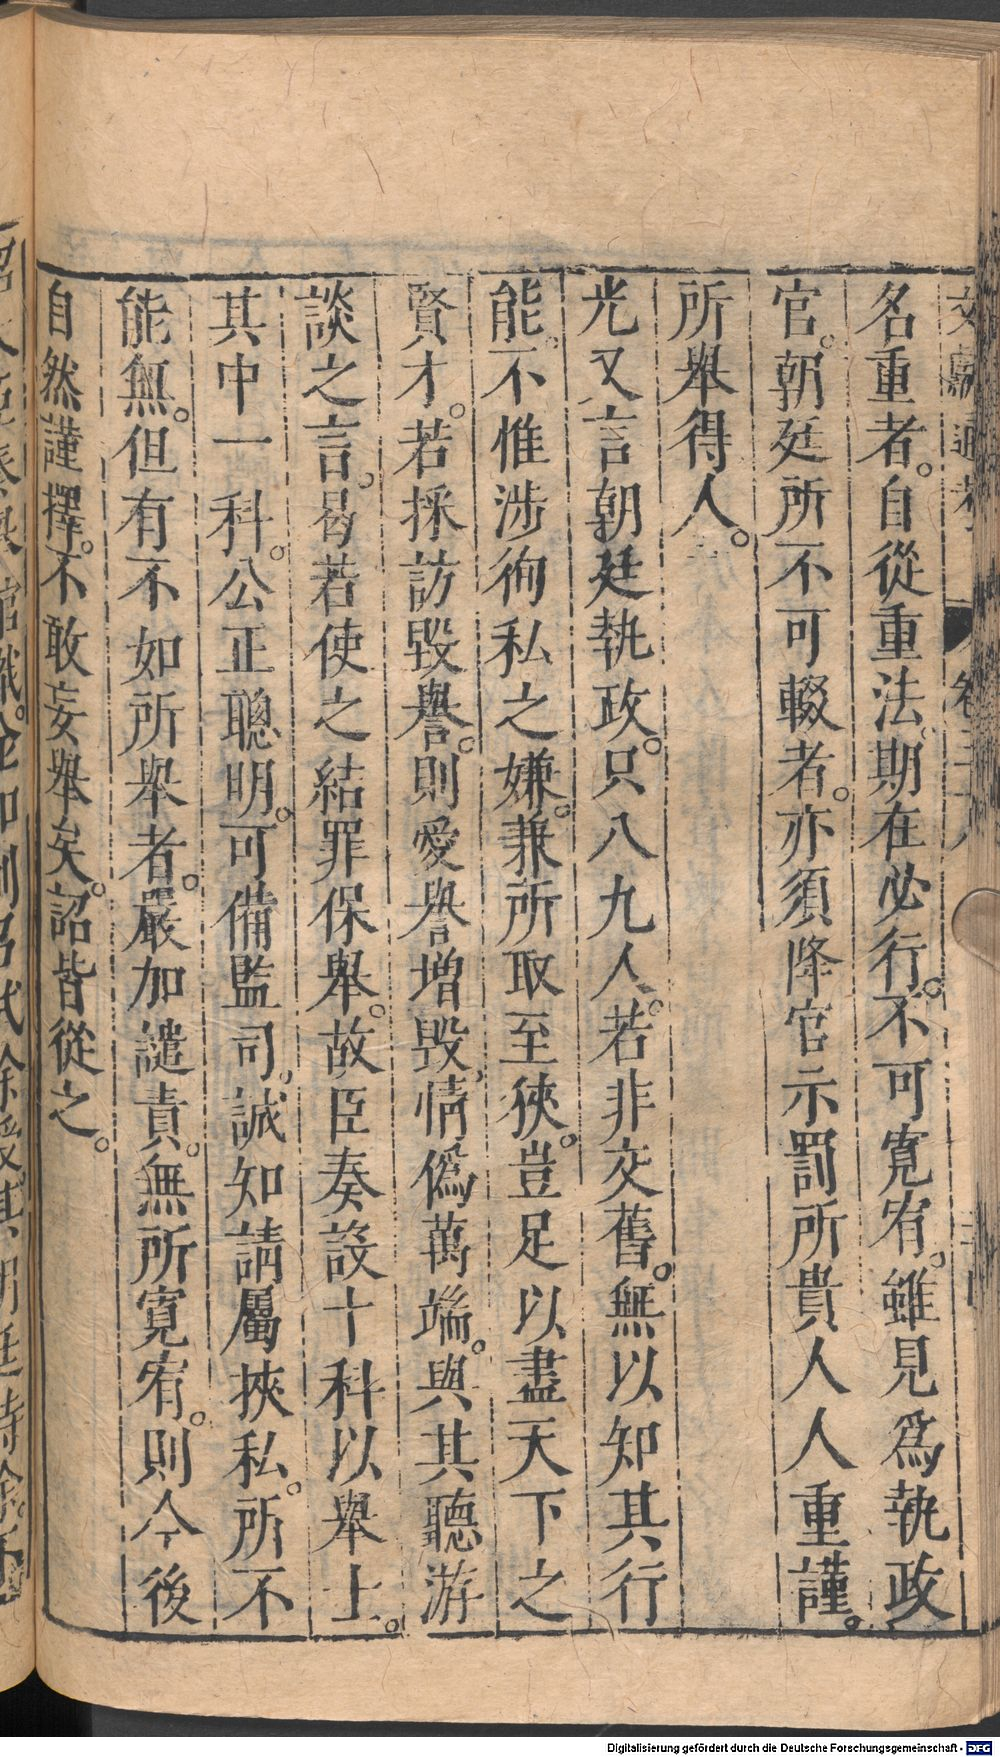 文獻通考 卷三十八
名重者。自從重法。期在必行。不可寬宥。雖見爲執政
官。朝廷所不可輟者。亦須降官示罰所貴人人重謹。
所舉得人。
光又言朝廷執政。只八九人。若非交舊。無以知其行
能。不惟涉徇私之嫌。兼所取至狹。豈足以盡天下之
賢才。若採訪毀譽。則愛譽增毀。情僞萬端。與其聽游
談之言。曷若使之結罪保舉。故臣奏設十科以舉上。
其中一科。公正聰明。可備監司。誠知請屬挾私。所不
能無。但有不如所舉者。嚴加譴責。無所寬宥。則今後
自然謹擇。不敢妄舉矣。詔皆從之。
Digitalisierung gefördert durch die Deutsche Forschungsgemeinschaft - DFG